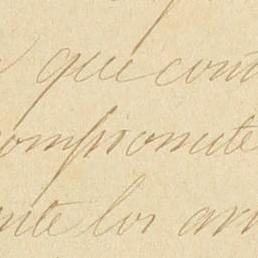 que cont
compromete
nte los arr